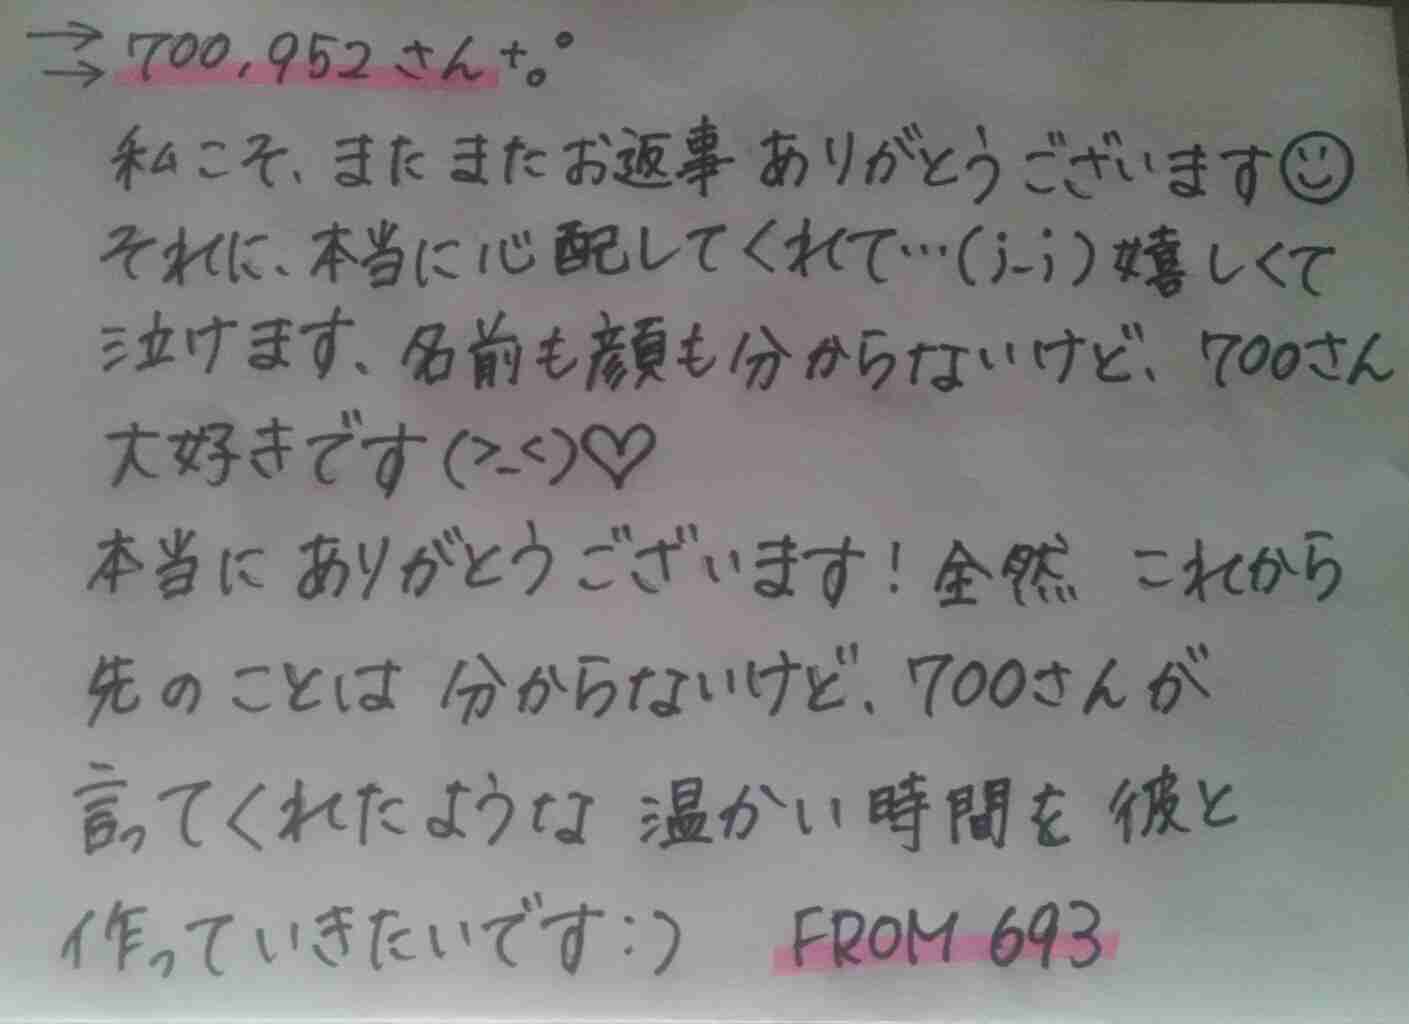 →→ 700,952さん+。°
私こそ、またまたお返事 ありがとうございます☺
それに、本当に心配してくれて…(;_;)嬉しくて
泣けます、名前も顔も分からないけど、700さん
大好きです(>_<)♡
本当に ありがとうございます!全然 これから
先のことは 分からないけど、700さんが
言ってくれたような 温かい時間を 彼と
作っていきたいです:) FROM 693